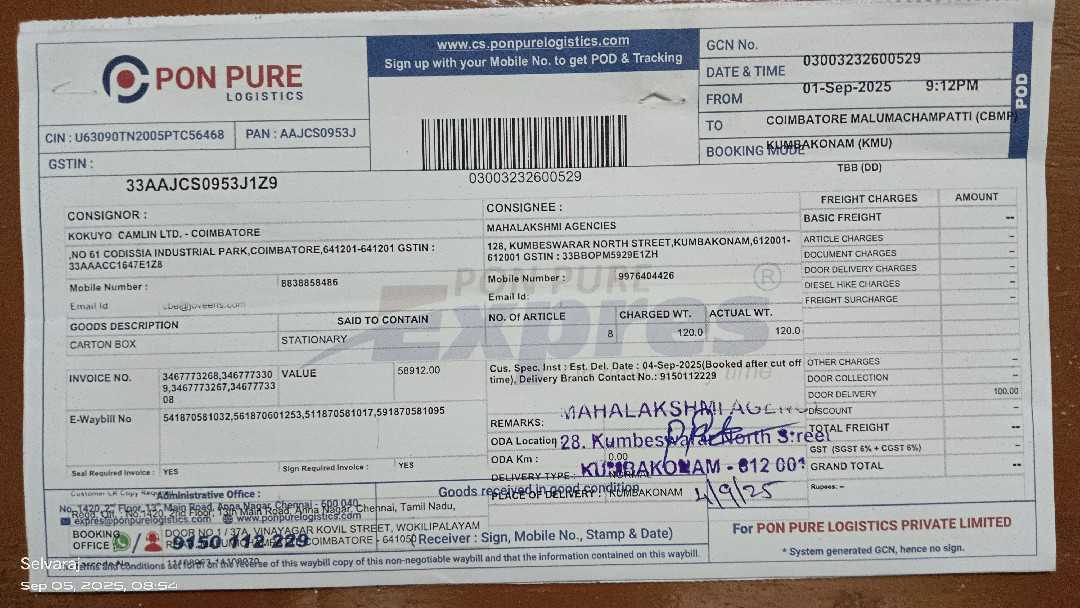 PON PURE
LOGISTICS
CIN : U63090TN2005PTC56468
PAN : AAJCS0953J
GSTIN :
33AAJCS0953J1Z9
www.cs.ponpurelogistics.com
Sign up with your Mobile No. to get POD & Tracking
03003232600529
GCN No.
03003232600529
DATE & TIME
01-Sep-2025 9:12PM
FROM
COIMBATORE MALUMACHAMPATTI (CBMP)
TO
KUMBAKONAM (KMU)
BOOKING MODE
TBB (DD)
POD
CONSIGNOR :
KOKUYO CAMLIN LTD. - COIMBATORE
,NO 61 CODISSIA INDUSTRIAL PARK,COIMBATORE,641201-641201 GSTIN :
33AAACC1647E1Z8
Mobile Number : 8838858486
Email Id
CONSIGNEE :
MAHALAKSHMI AGENCIES
128, KUMBESWARAR NORTH STREET,KUMBAKONAM,612001-
612001 GSTIN : 33BBOPM5929E1ZH
Mobile Number : 9976404426
Email Id:
PON PURE
Expres
time
®
FREIGHT CHARGES AMOUNT
BASIC FREIGHT --
ARTICLE CHARGES --
DOCUMENT CHARGES --
DOOR DELIVERY CHARGES --
DIESEL HIKE CHARGES --
FREIGHT SURCHARGE --
OTHER CHARGES --
DOOR COLLECTION --
DOOR DELIVERY 100.00
DISCOUNT --
TOTAL FREIGHT --
GST (SGST 6% + CGST 6%) --
GRAND TOTAL --
Rupees: --
GOODS DESCRIPTION SAID TO CONTAIN
CARTON BOX STATIONARY
NO. Of ARTICLE CHARGED WT. ACTUAL WT.
8 120.0 120.0
INVOICE NO.
3467773268,346777330
9,3467773267,34677733
08
VALUE 58912.00
E-Waybill No
541870581032,561870601253,511870581017,591870581095
Seal Required Invoice : YES
Sign Required Invoice : YES
Cus. Spec. Inst : Est. Del. Date : 04-Sep-2025(Booked after cut off
time), Delivery Branch Contact No.: 9150112229
REMARKS:
ODA Location
ODA Km : 0.00
DELIVERY TYPE : NORMAL
PLACE OF DELIVERY : KUMBAKONAM
MAHALAKSHMI
28. Kumbeswarar North Street
KUMBAKONAM - 612 001
4/9/25
Goods received in good condition
(Receiver : Sign, Mobile No., Stamp & Date)
Customer LR Copy
Administrative Office :
No. 1420, 2nd Floor, 13th Main Road, Anna Nagar, Chennai - 600 040
Regd. Off. : No.1420, 2nd Floor, 13th Main Road, Anna Nagar, Chennai, Tamil Nadu,
expres@ponpurelogistics.com www.ponpurelogistics.com
BOOKING
OFFICE
DOOR NO.1 / 37A, VINAYAGAR KOVIL STREET, WOKILIPALAYAM
COIMBATORE - 641050
9150 112 229
Terms and conditions set forth on the reverse of this waybill copy of this non-negotiable waybill and that the information contained on this waybill.
For PON PURE LOGISTICS PRIVATE LIMITED
* System generated GCN, hence no sign.
Selvaraj
Sep 05, 2025, 08:54